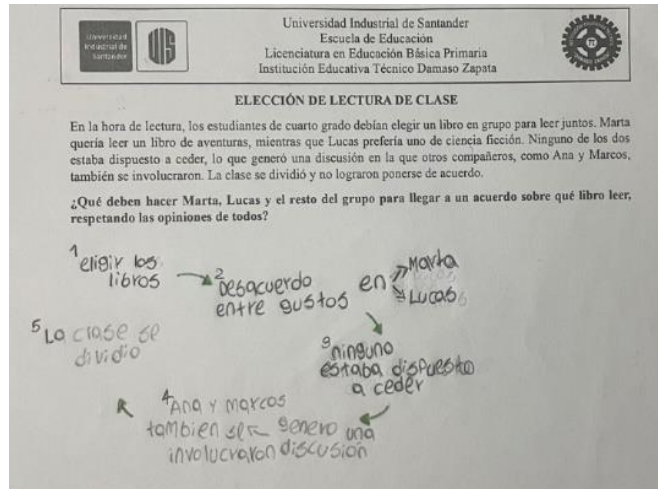 Universidad
Industrial de
Santander
UIS
Universidad Industrial de Santander
Escuela de Educación
Licenciatura en Educación Básica Primaria
Institución Educativa Técnico Damaso Zapata
ELECCIÓN DE LECTURA DE CLASE
En la hora de lectura, los estudiantes de cuarto grado debían elegir un libro en grupo para leer juntos. Marta
quería leer un libro de aventuras, mientras que Lucas prefería uno de ciencia ficción. Ninguno de los dos
estaba dispuesto a ceder, lo que generó una discusión en la que otros compañeros, como Ana y Marcos,
también se involucraron. La clase se dividió y no lograron ponerse de acuerdo.
¿Qué deben hacer Marta, Lucas y el resto del grupo para llegar a un acuerdo sobre qué libro leer,
respetando las opiniones de todos?
1 eligir los
libros
2 Desacuerdo
entre gustos
en
Marta
Lucas
3 ninguno
estaba dispuesto
a ceder
genero una
discusión
4 Ana y marcos
tambien se
involucraron
5 La clase se
dividio